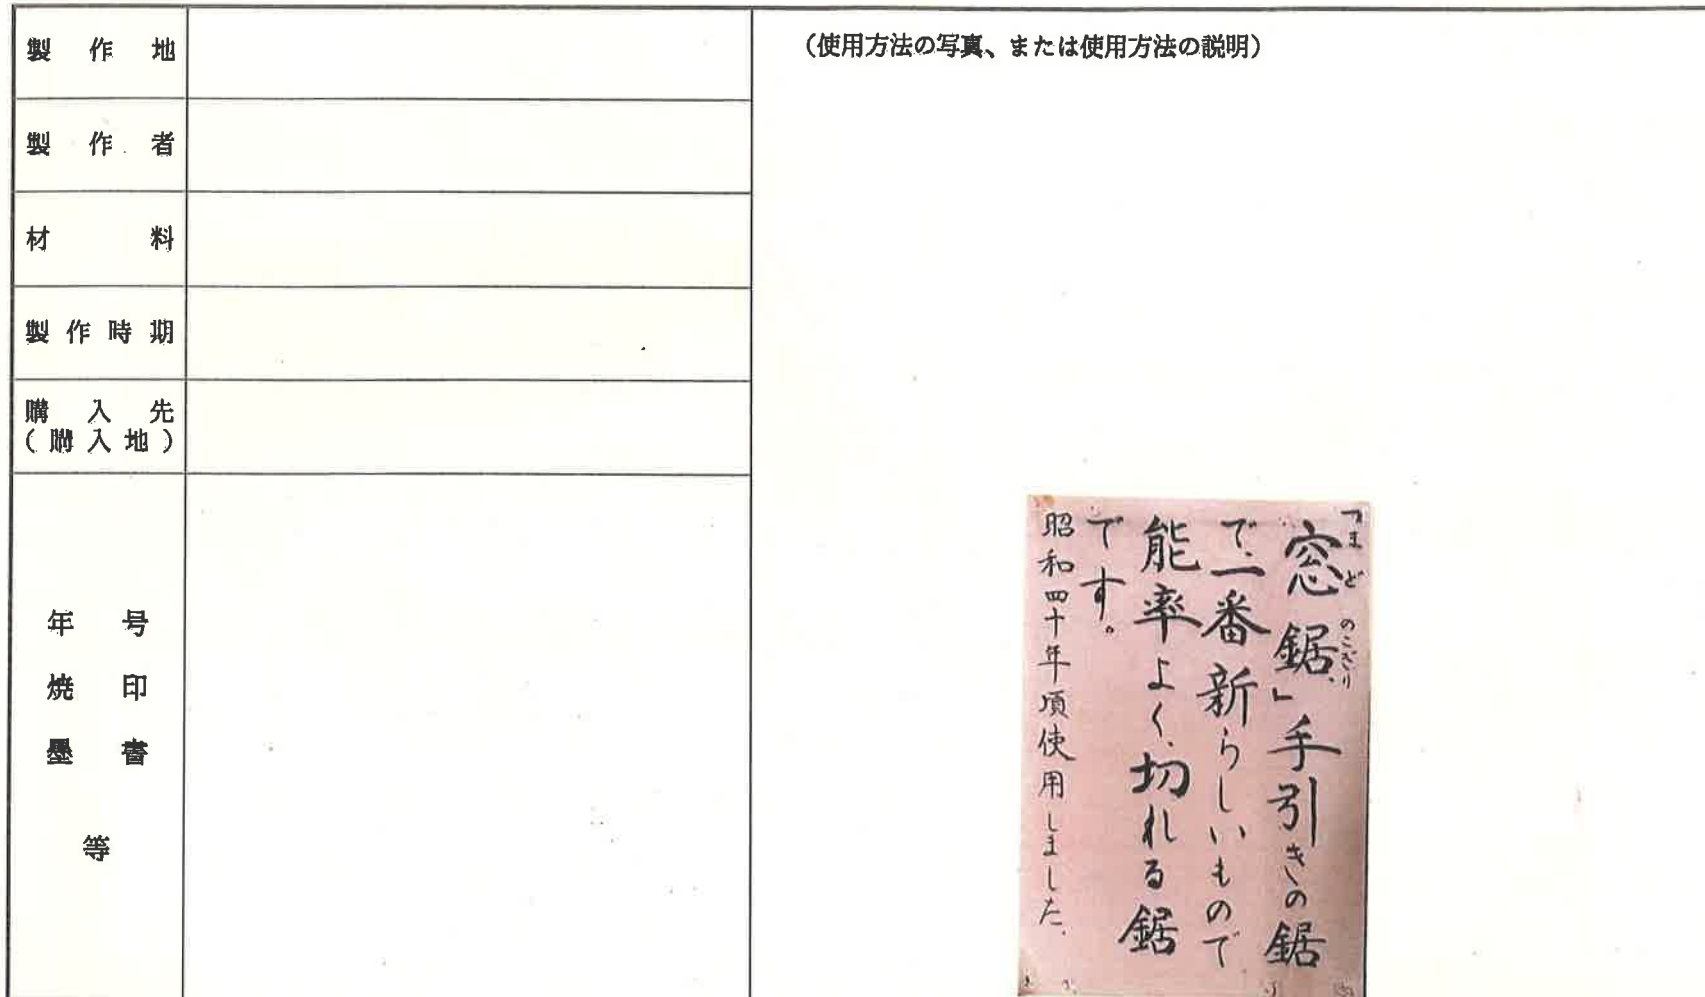 製作地
製作者
材料
製作時期
購入先
(購入地)
年号
焼印
墨書
等
(使用方法の写真、または使用方法の説明)
「窓鋸」手引きの鋸
まどのこぎり
で一番新らしいもので
能率よく切れる鋸
です。
昭和四十年頃使用しました。